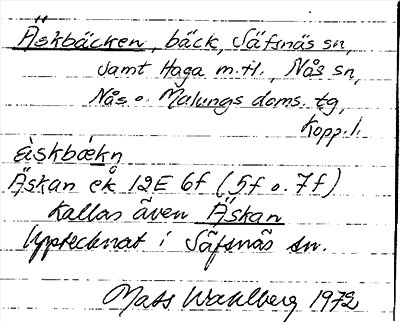 Äskbäcken, bäck, Säfsnäs sn,
samt Haga m.fl., Nås sn,
Nås o. Malungs doms. tg,
Kopp. l.
èskbǽkn
Äskan ek 12E 6f (5f o. 7f)
Kallas även Äskan
Upptecknat i Säfsnäs sn.
Mats Wahlberg 1972